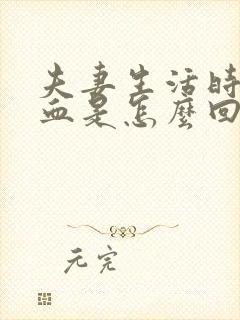 夫妻生活時
血是怎麼回
元完